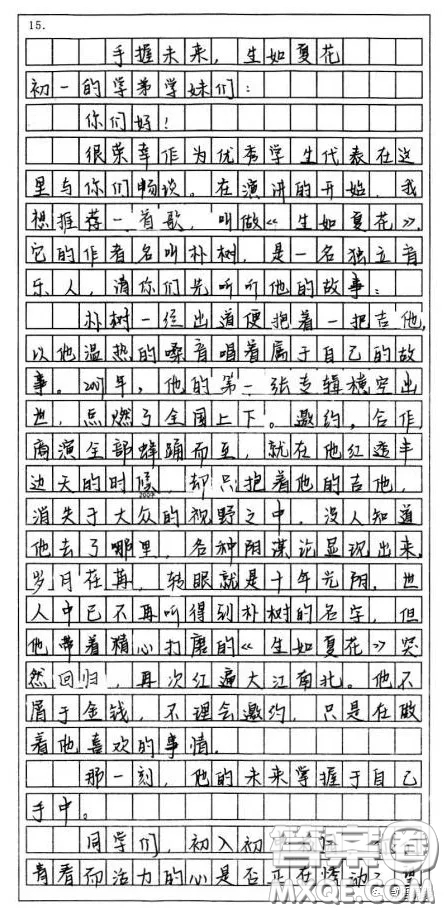 15.
手握未来，生如夏花
初一的学弟学妹们：
你们好！
很荣幸作为优秀学生代表在这
里与你们畅谈。在演讲的开始，我
想推荐一首歌，叫做《生如夏花》，
它的作者名叫朴树，是一名独立音
乐人，请你们先听听他的故事：
朴树一经出道便抱着一把吉他，
以他温热的嗓音唱着属于自己的故
事。年，他的第一张专辑横空出
世，点燃了全国上下。邀约，合作，
商演全部蜂踊而至，就在他红透半
边天的时候，却只抱着他的吉他，
消失于大众的视野之中，没人知道
他去了哪里，各种阴谋论显现出来，
岁月在苒，转眼就是十年光阴，世
人中已不再听得到朴树的名字，但
他带着精心打磨的《生如夏花》突
然回归，再次红遍大江南北。他不
屑于金钱，不理会邀约，只是在做
着他喜欢的事情。
那一刻，他的未来掌握于自己
手中。
同学们，初入初一
青春而活力的心是否正在悸动？
答案圈
MXQE.COM